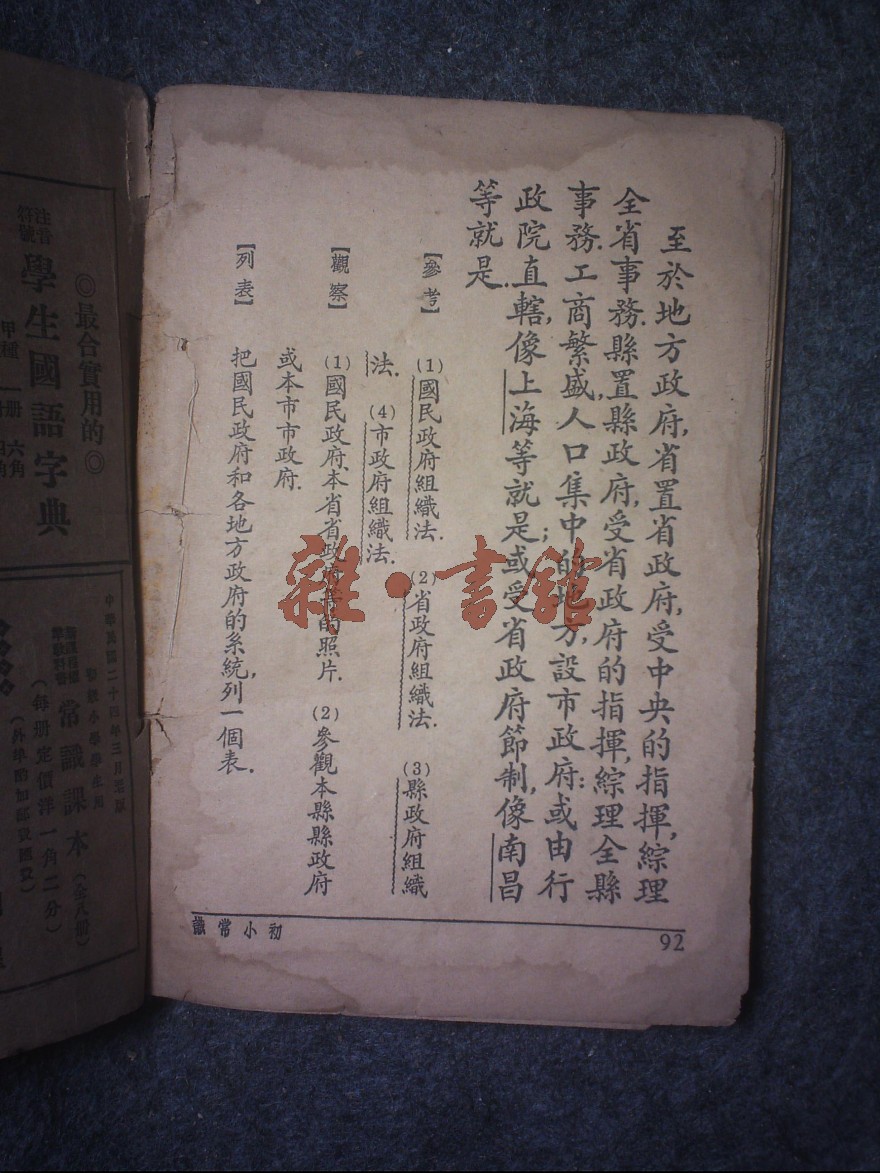 至於地方政府,省置省政府,受中央的指揮,綜理
全省事務.縣置縣政府,受省政府的指揮,綜理全縣
事務.工商繁盛,人口集中的地方,設市政府:或由行
政院直轄,像上海等就是;或受省政府節制,像南昌
等就是.
【參考】 (1)國民政府組織法. (2)省政府組織法. (3)縣政府組織
法. (4)市政府組織法.
【觀察】 (1)國民政府.本省省政府的照片. (2)參觀本縣縣政府
或本市市政府.
【列表】 把國民政府和各地方政府的系統,列一個表.
初小常識
92
雜·書館
◎最合實用的◎
注音符號 學生國語字典
甲種一册 六角
中華民國二十四年三月
小學學生用
常識課本(全八册)
(每册定價洋一角二分)
(外埠酌加郵費匯費)